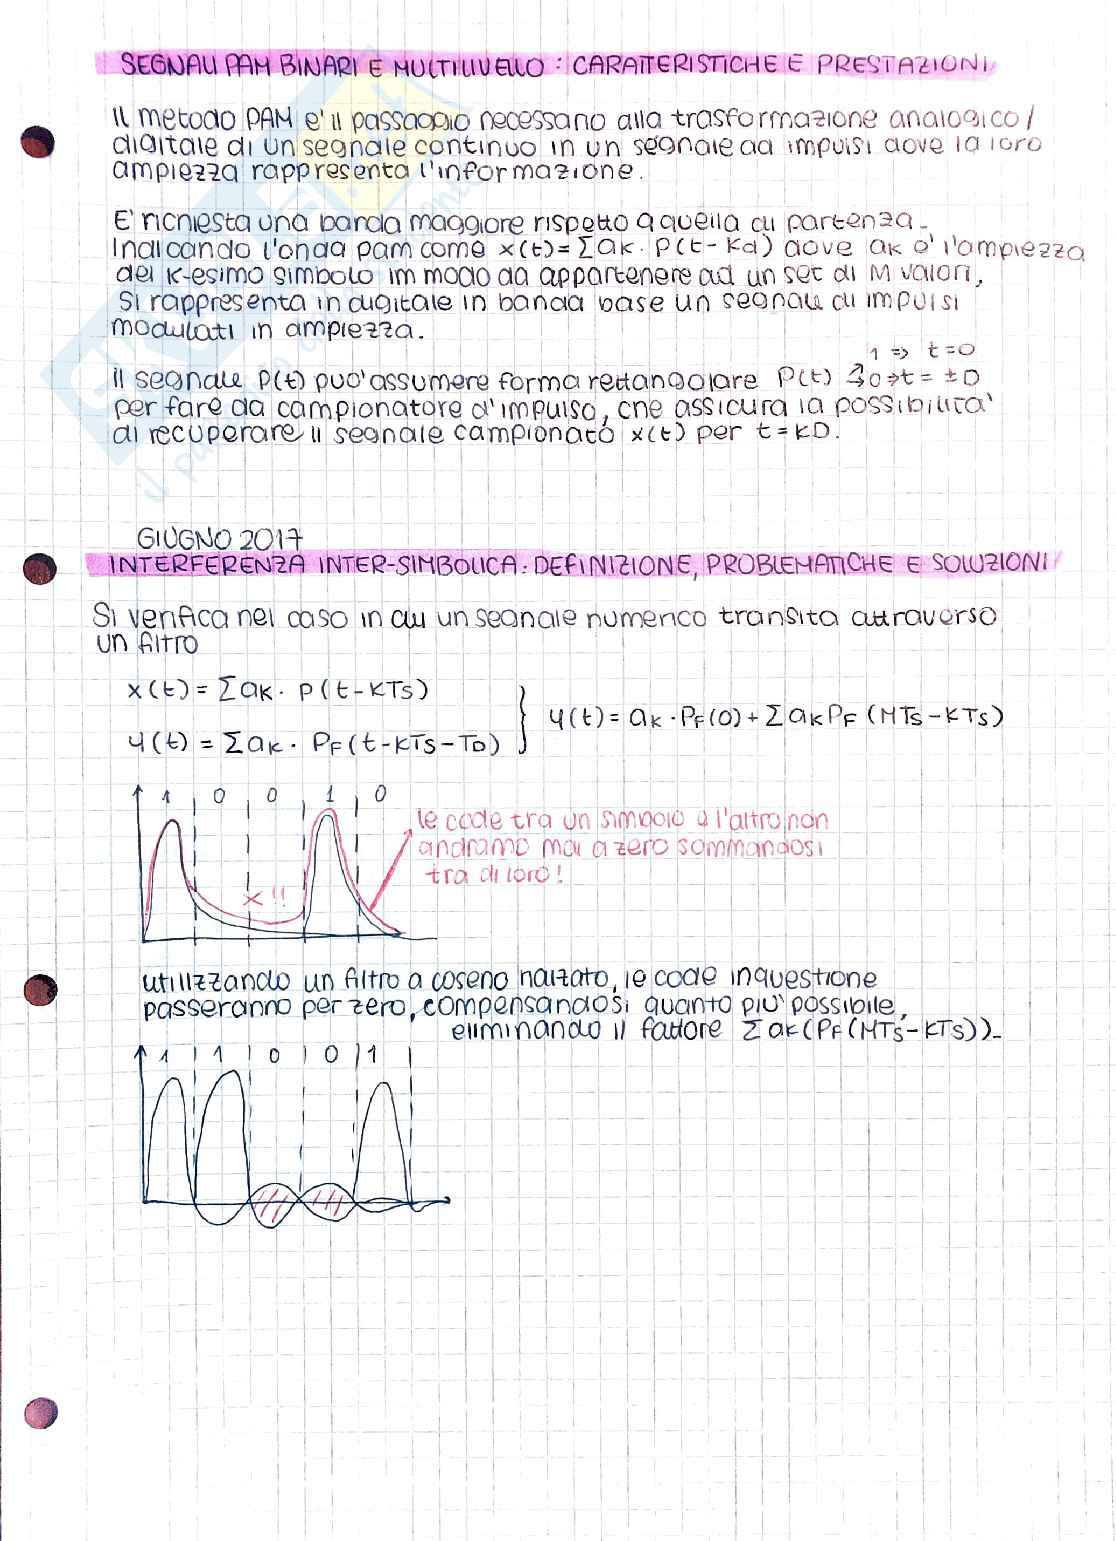 SEGNALI PAM BINARI E MULTILIVELLO : CARATTERISTICHE E PRESTAZIONI
Il metodo PAM e' il passaggio necessario alla trasformazione analogico/
digitale di un segnale continuo in un segnale ad impulsi dove la loro
ampiezza rappresenta l'informazione.
E' richiesta una banda maggiore rispetto a quella di partenza.
Indicando l'onda pam come x(t)= Σak · P(t-Kd) dove ak e' l'ampiezza
del k-esimo simbolo im modo da appartenere ad un set di M valori,
si rappresenta in digitale in banda base un segnale di impulsi
modulati in ampiezza.
1 => t=0
il segnale P(t) puo' assumere forma rettangolare P(t) 0 => t = ±D
per fare da campionatore d'impulso, che assicura la possibilita'
di recuperare il segnale campionato x(t) per t=KD.
GIUGNO 2017
INTERFERENZA INTER-SIMBOLICA: DEFINIZIONE, PROBLEMATICHE E SOLUZIONI
Si verifica nel caso in cui un segnale numerico transita attraverso
un filtro
x(t) = Σak · p(t-KTs)
y(t) = ak · PF(0) + Σ akPF (MTs-KTs)
y(t) = Σak · PF(t-KTs-TD)
1 0 0 1 0
le code tra un simbolo e l'altro non
andranno mai a zero sommandosi
tra di loro!
x !!
utilizzando un filtro a coseno rialzato, le code in questione
passeranno per zero, compensandosi quanto piu' possibile,
eliminando il fattore Σ ak(PF(MTs-KTs)).
1 1 0 0 1